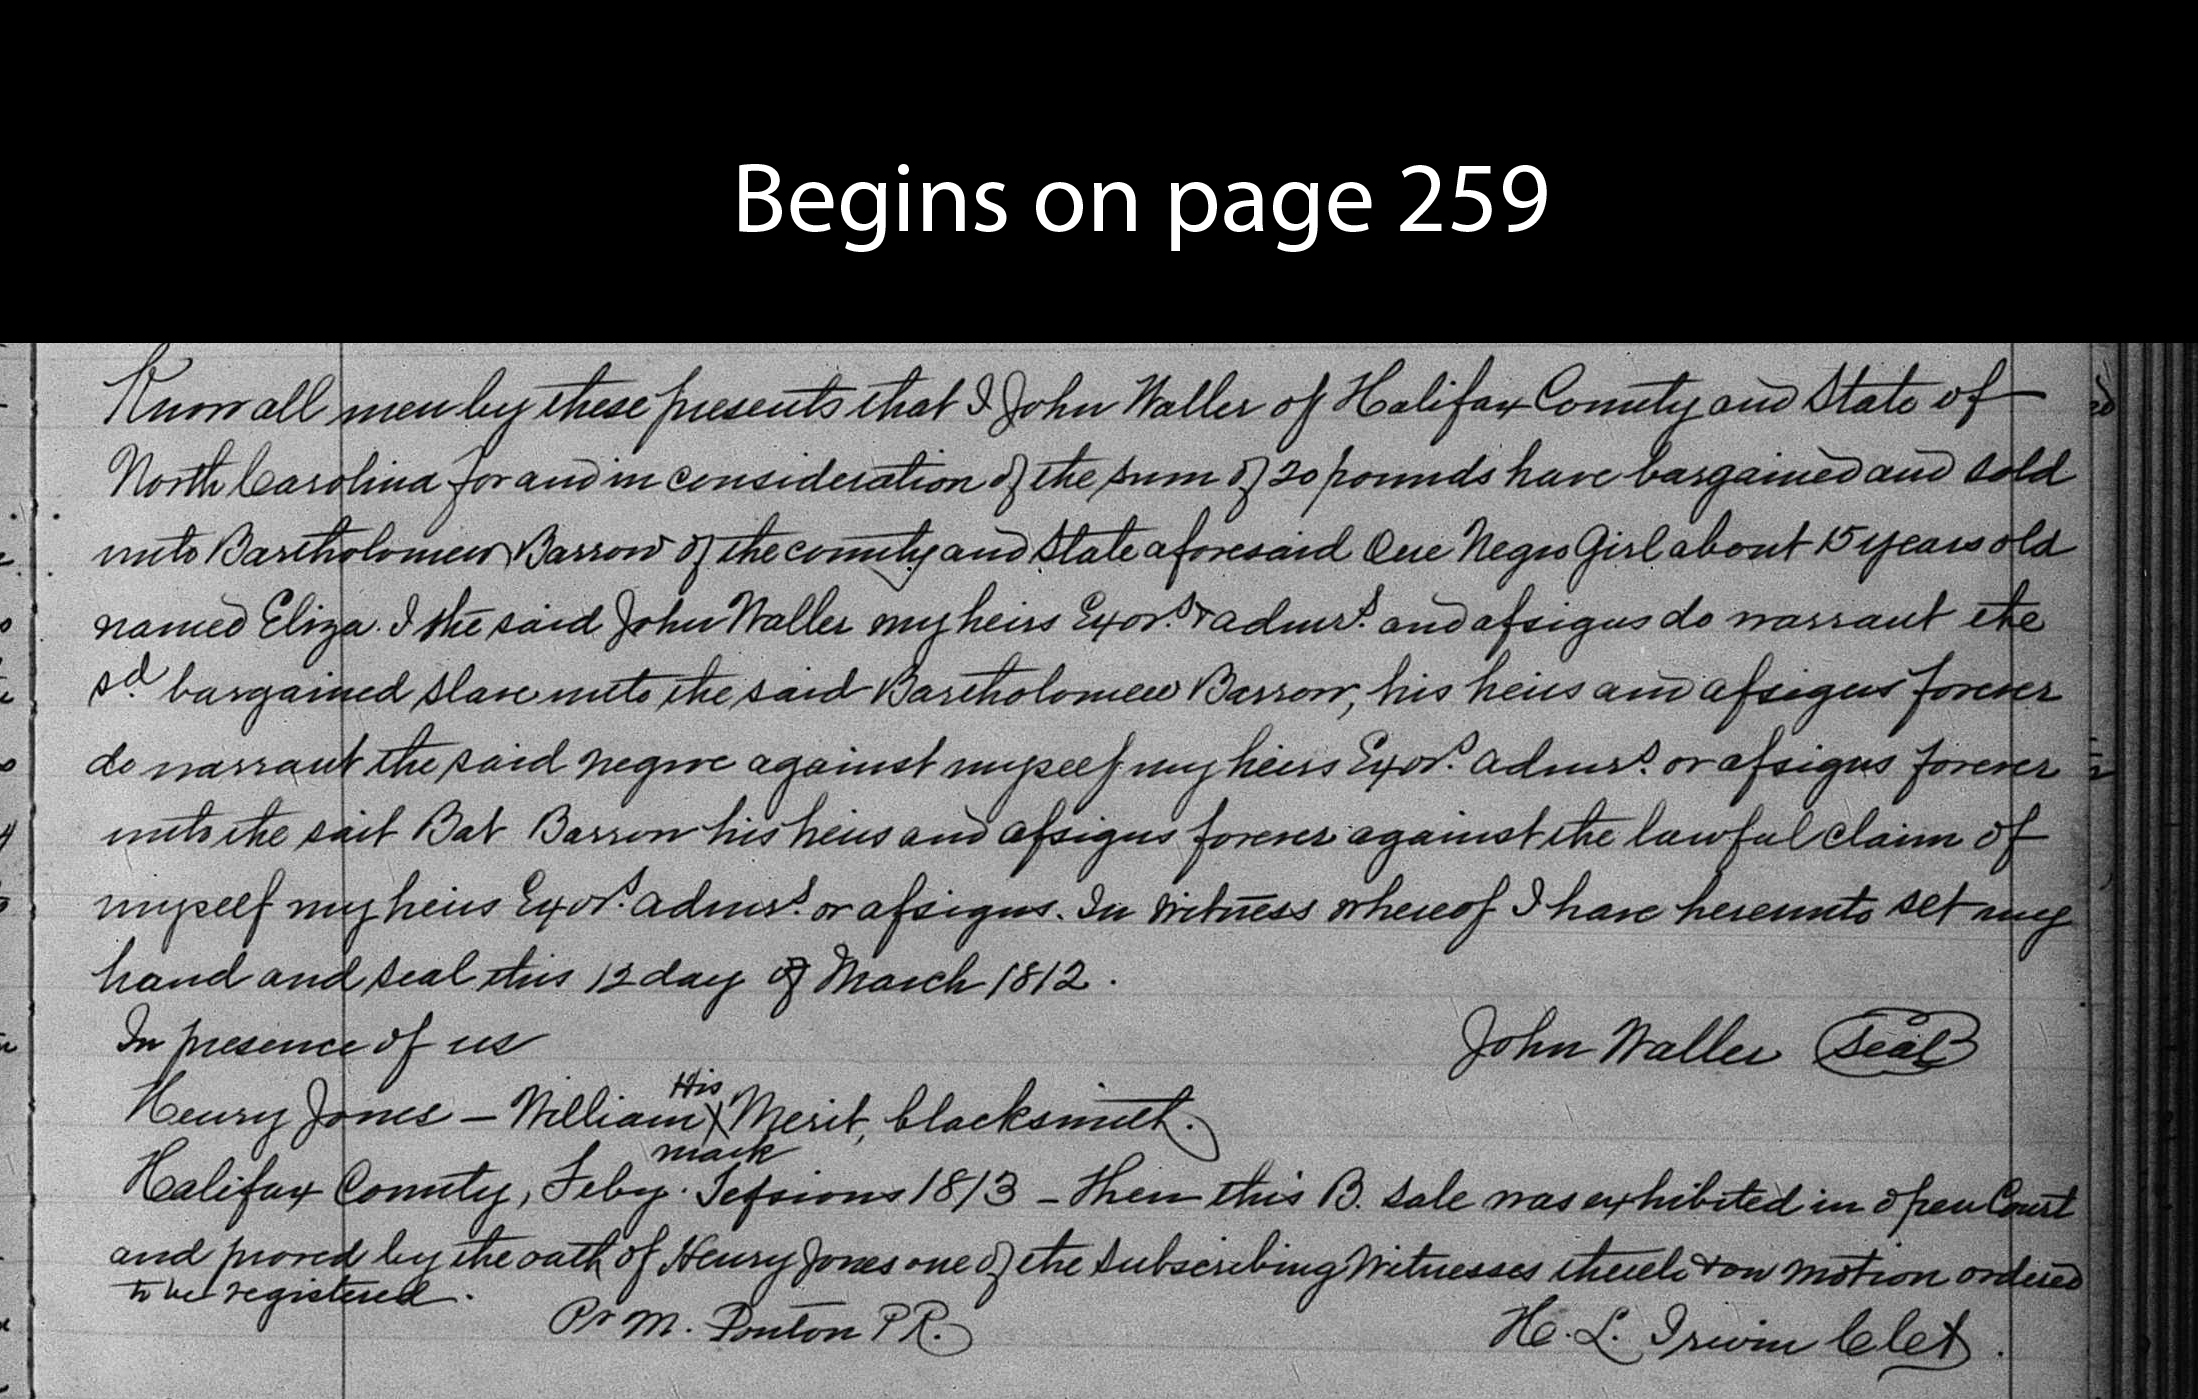 Begins on page 259
Know all men by these presents that I John Waller of Halifax County and State of
North Carolina for and in consideration of the sum of 20 pounds have bargained and sold
unto Bartholomew Barrow of the county and State aforesaid One Negro Girl about 15 years old
named Eliza. I the said John Waller my heirs Exors. & admrs. and assigns do warrant the
sd bargained slave unto the said Bartholomew Barrow, his heirs and assigns forever
do warrant the said negroe against myself my heirs Exors. admrs. or assigns forever
unto the sait Bat Barrow his heirs and assigns forever against the lawful claim of
myself my heirs Exors. admrs. or assigns. In Witness whereof I have hereunto set my
hand and seal this 12 day of March 1812.
In presence of us
John Waller Seal
His
Henry Jones – William X Merit, blacksmith.
mark
Halifax County, Feby. Sessions 1813 – Then this B. Sale was exhibited in open Court
and proved by the oath of Henry Jones one of the Subscribing Witnesses thereto & on motion ordered
to be registered.
Pr M. Ponton P R.
H. L. Irwin Clet.